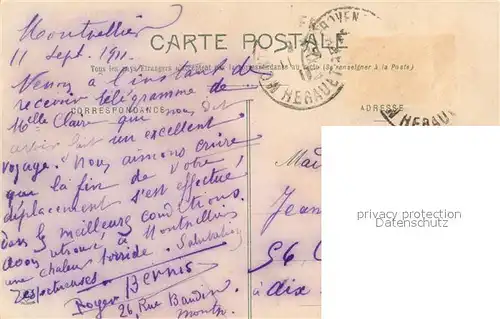 Montpellier
11 Sept. 1911.
CARTE POSTALE
Tous les pays étrangers n'acceptent pas la correspondance au recto (Se renseigner à la Poste)
CORRESPONDANCE
ADRESSE
HERAULT
HERAU
Venons à l'instant de
recevoir télégramme de
Melle Claire qui nous dit
avoir fait un excellent
voyage. Nous aimons croire
que la fin de votre
déplacement s'est effectué
dans les meilleures conditions.
avons retrouvé à Montpellier
une chaleur torride. Salutations
respectueuses
Roger Bernis
26, Rue Baudin
Montp.
Jean
56
à dix
privacy protection
Datenschutz
www.oldthing.de